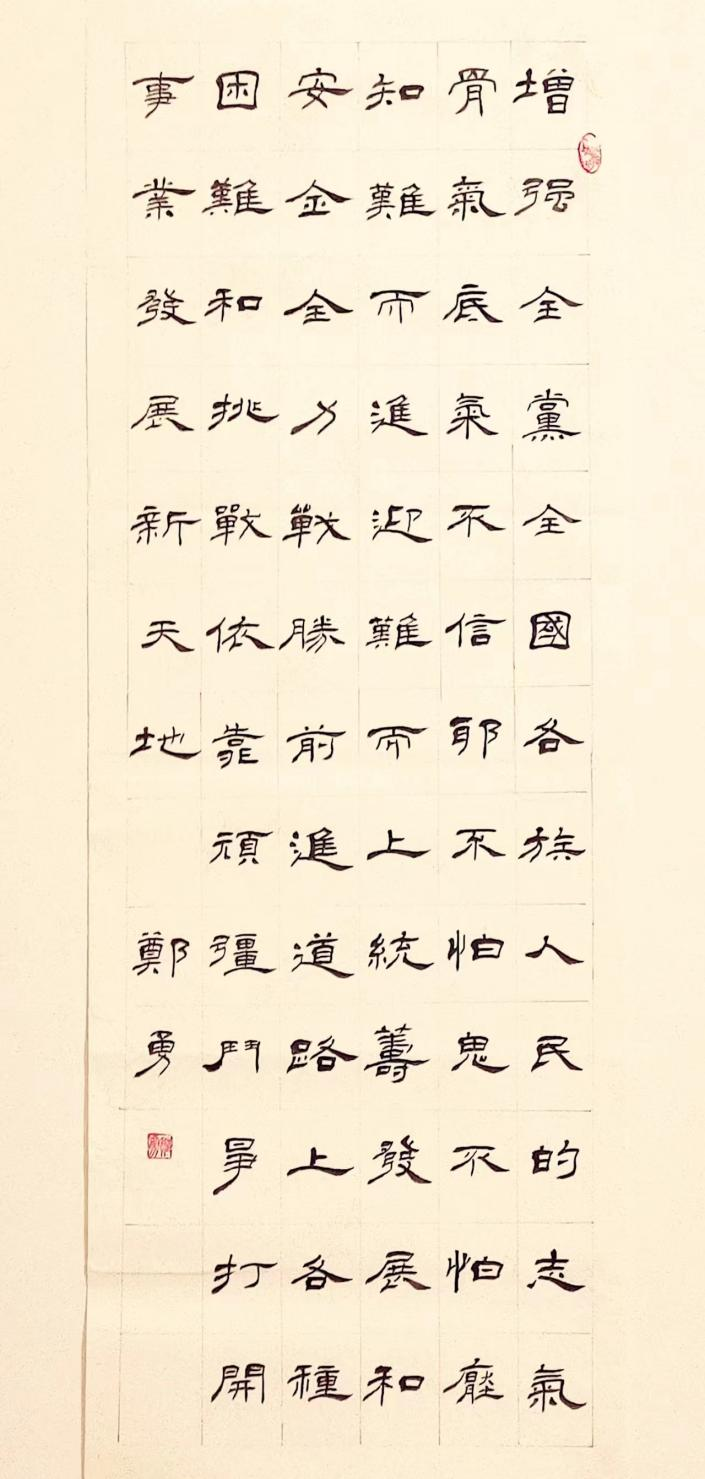 增强全黨全國各族人民的志氣
骨氣底氣不信耶不怕鬼不怕壓
知難而進迎難而上統籌發展和
安金全力戰勝前進道路上各種
困難和挑戰依靠頑彊鬥爭打開
事業發展新天地 鄭勇